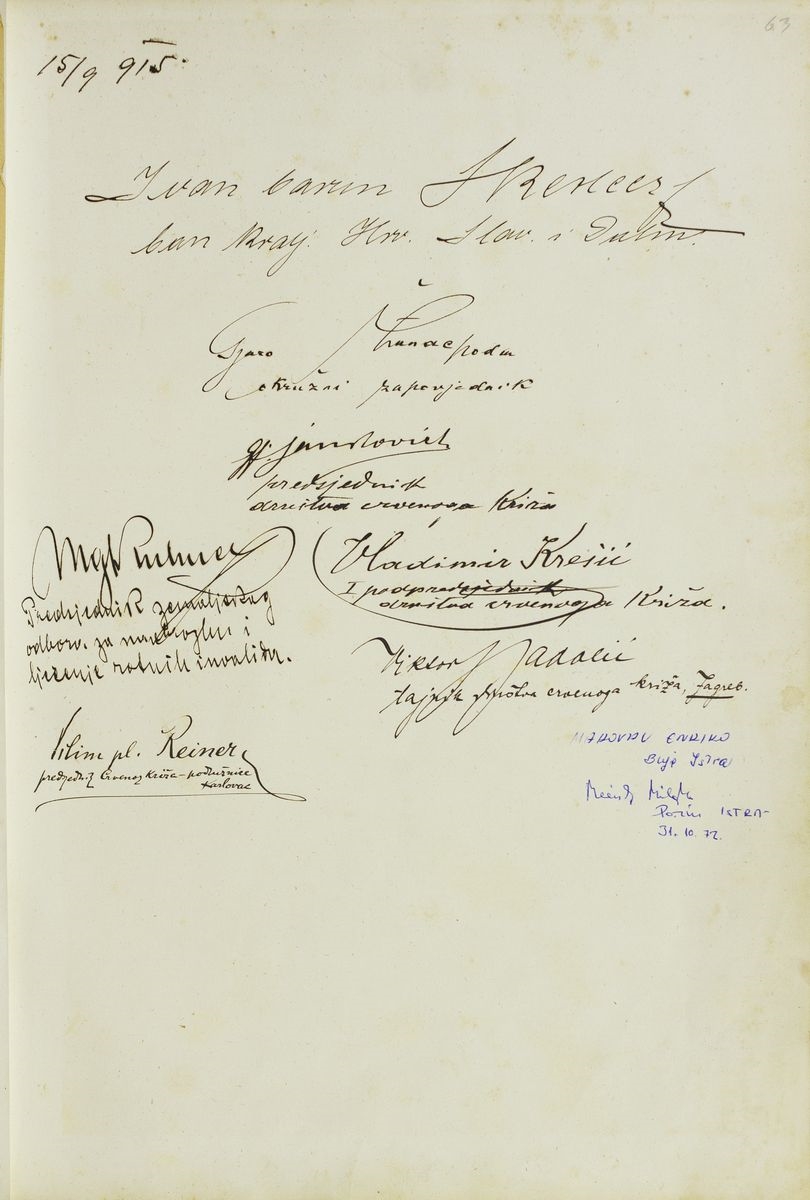 63
15/9 915.
Ivan barun Skerlecz
ban kralj. Hrv. Slav. i Dalm.
Gjuro
okružni zapovjednik
predsjednik
društva crvenoga Križa
Predsjednik zemaljskog
odbora za i
liječenje ratnih invalida.
Vladimir Krešić
I podpredsjednik
društva crvenoga Križa.
Viktor
tajnik društva crvenoga križa, Zagreb.
Vilim pl. Reiner
predsjednik Crvenog Križa - podružnice
Karlovac
ENRIKO
Buje Istra
ISTRA
31. 10. 72.